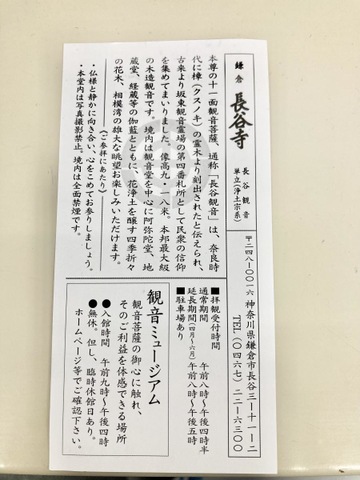 鎌倉 長谷寺
長谷観音
単立(浄土宗系)
〒二四八-〇〇一六 神奈川県鎌倉市長谷三-十一-二
TEL(〇四六七)二二-六三〇〇
本尊の十一面観音菩薩、通称「長谷観音」は、奈良時
代に樟(クスノキ)の霊木より刻出されたと伝えられ、
古来より坂東観音霊場の第四番札所として民衆の信仰
を集めてまいりました。像高九・一八米。本邦最大級
の木造観音です。境内は観音堂を中心に阿弥陀堂、地
蔵堂、経蔵等の伽藍とともに、花浄土を醸す四季折々
の花木、相模湾の雄大な眺望お楽しみいただけます。
(ご参拝にあたり)
・仏様と静かに向き合い、心をこめてお参りしましょう。
・本堂内は写真撮影禁止。境内は全面禁煙です。
■拝観受付時間
通常期間 午前八時〜午後四時半
延長期間(四月〜六月) 午前八時〜午後五時
■駐車場あり
観音ミュージアム
観音菩薩の御心に触れ、
そのご利益を体感できる場所
●入館時間 午前九時〜午後四時
●無休。但し、臨時休館日あり。
ホームページ等でご確認下さい。